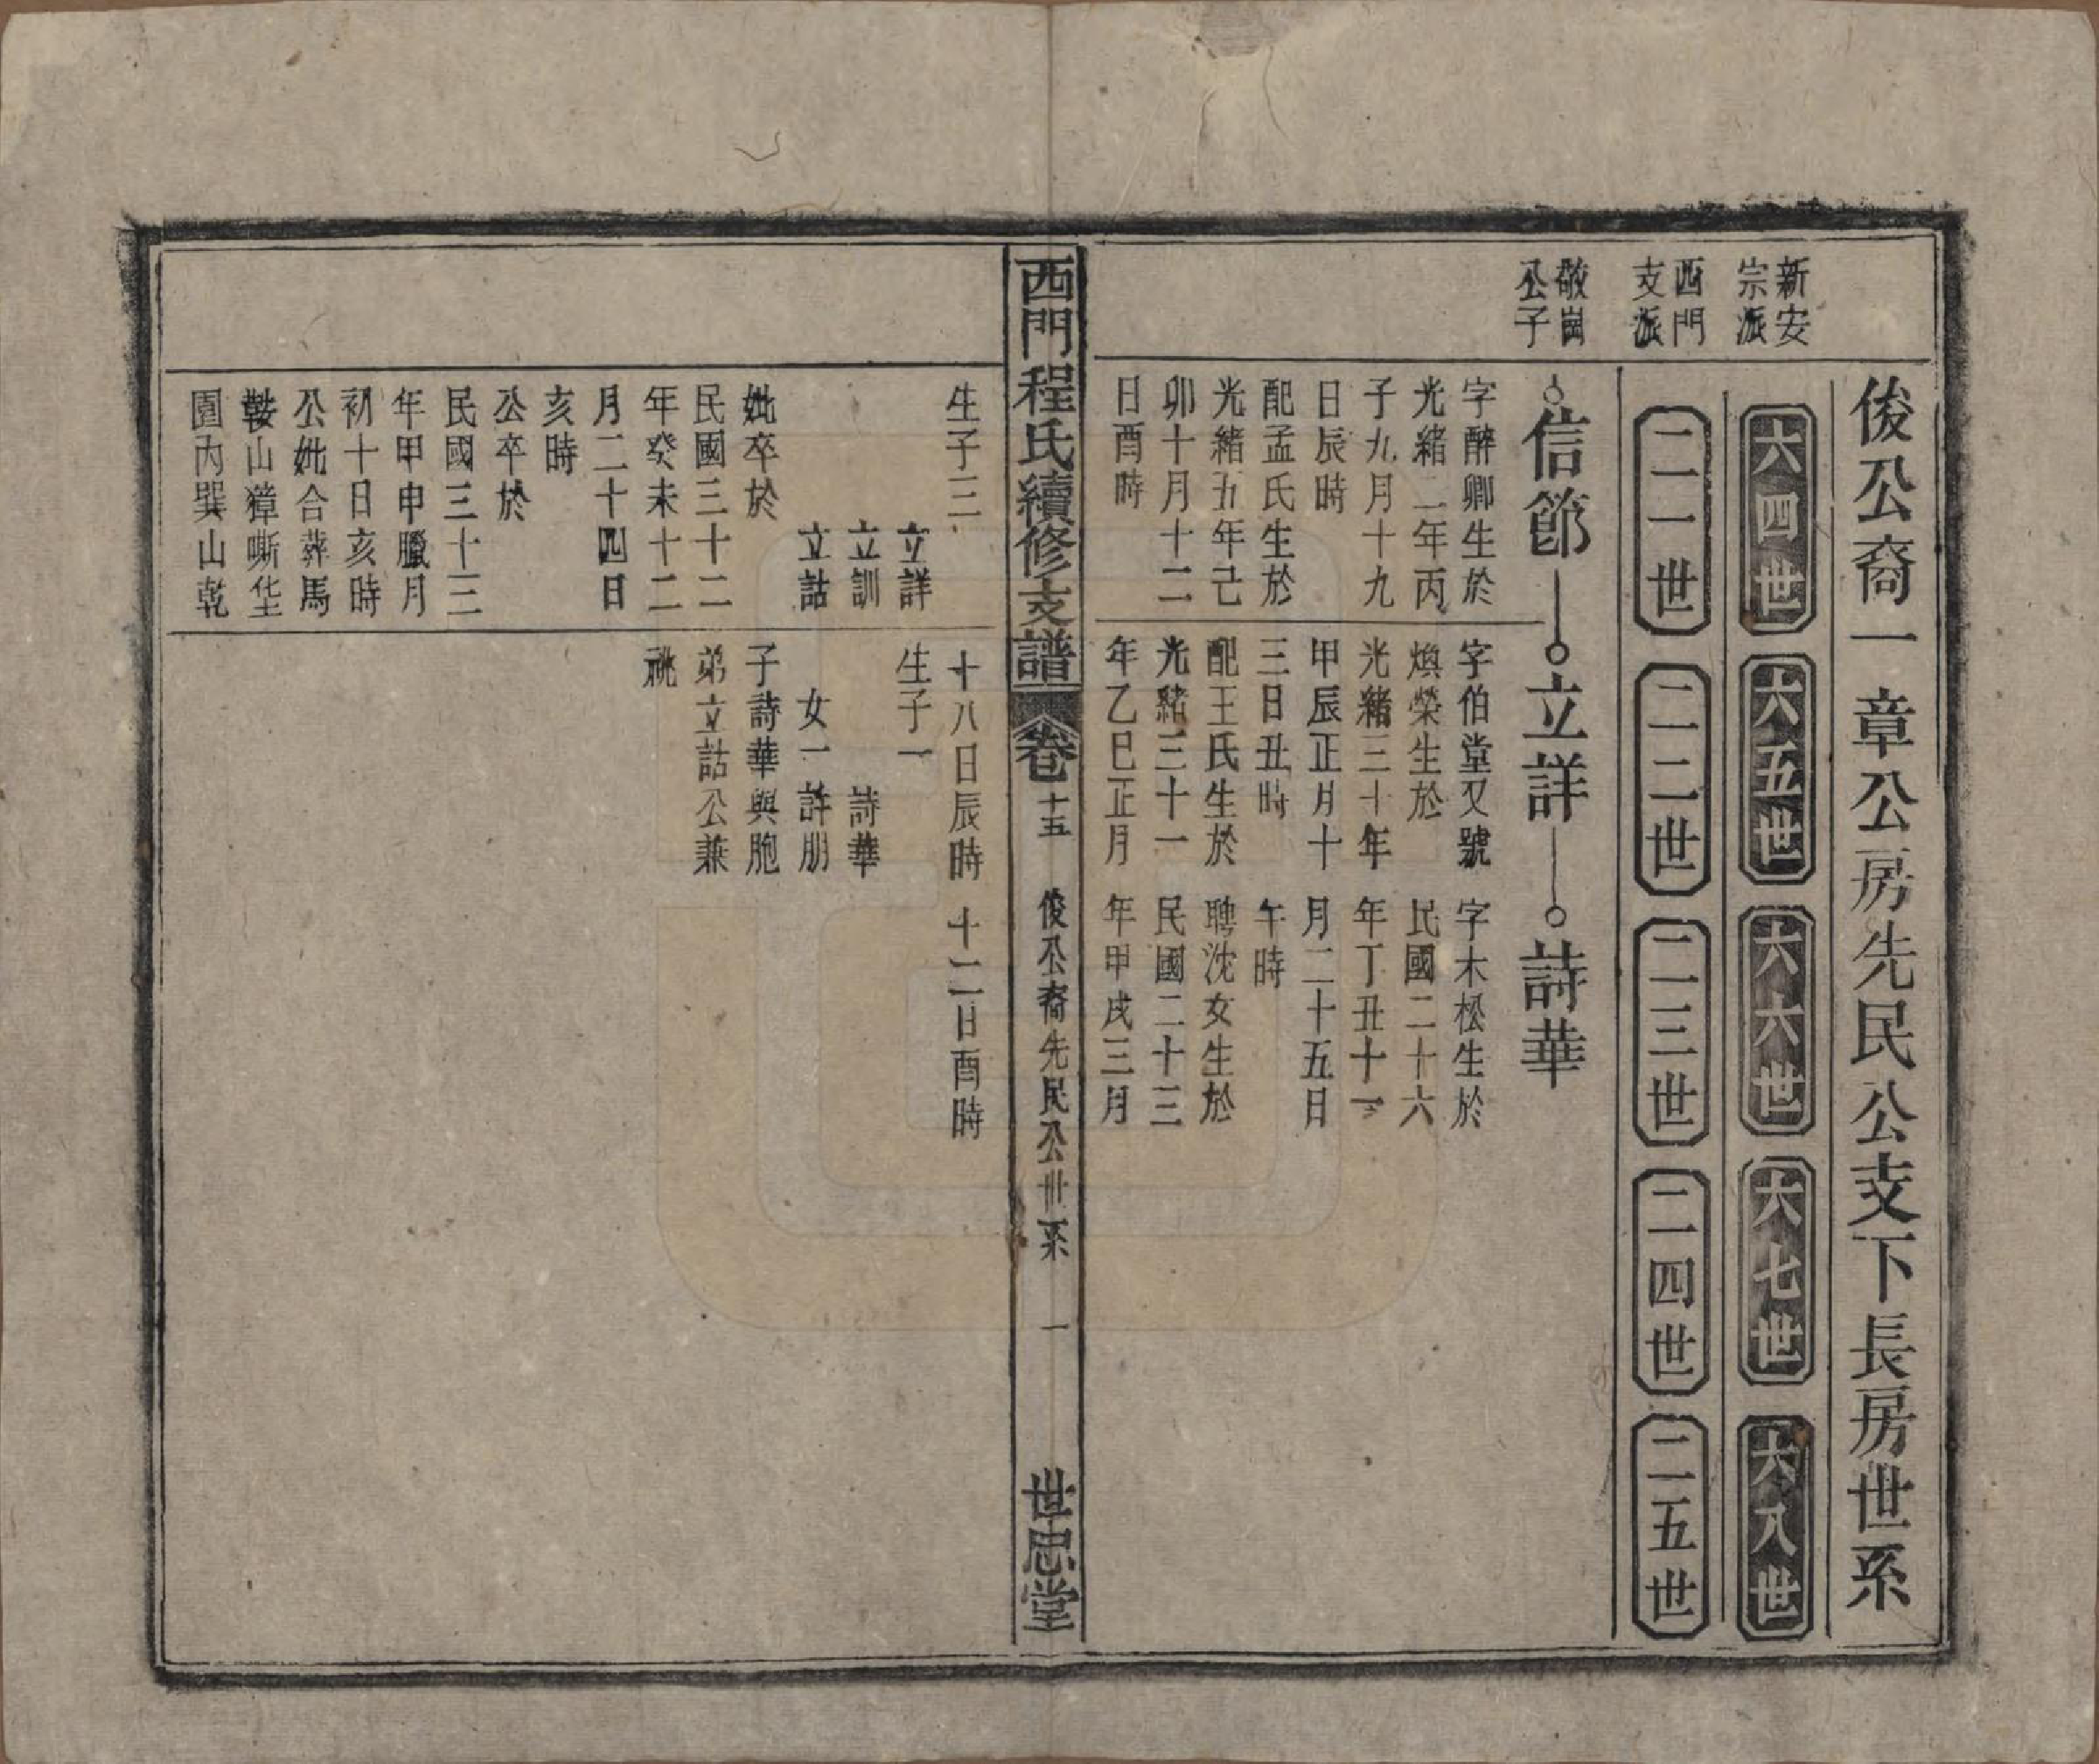 俊公裔一章公房先民公支下長房世系
新安
宗派
六四世
六五世
六六世
六七世
六八世
西門
支派
二一世
二二世
二三世
二四世
二五世
敬崗
公子
信節
立詳
詩華
字醉卿生於
光緒二年丙
子九月十九
日辰時
配孟氏生於
光緒五年己
卯十月十二
日酉時
字伯堂又號
煥榮生於
光緒三十年
甲辰正月十
三日丑時
配王氏生於
光緒三十一
年乙巳正月
字木松生於
民國二十六
年丁丑十一
月二十五日
午時
聘沈女生於
民國二十三
年甲戌三月
西門程氏續修支譜
卷十五
俊公裔先民公世系
一
世忠堂
生子三
立詳
立訓
立詁
妣卒於
民國三十二
年癸未十二
月二十四日
亥時
公卒於
民國三十三
年甲申臘月
初十日亥時
公妣合葬馬
鞍山獐嘶塋
園內巽山乾
十八日辰時
生子一
詩華
女一許朋
子詩華與胞
弟立詁公兼
祧
十二日酉時